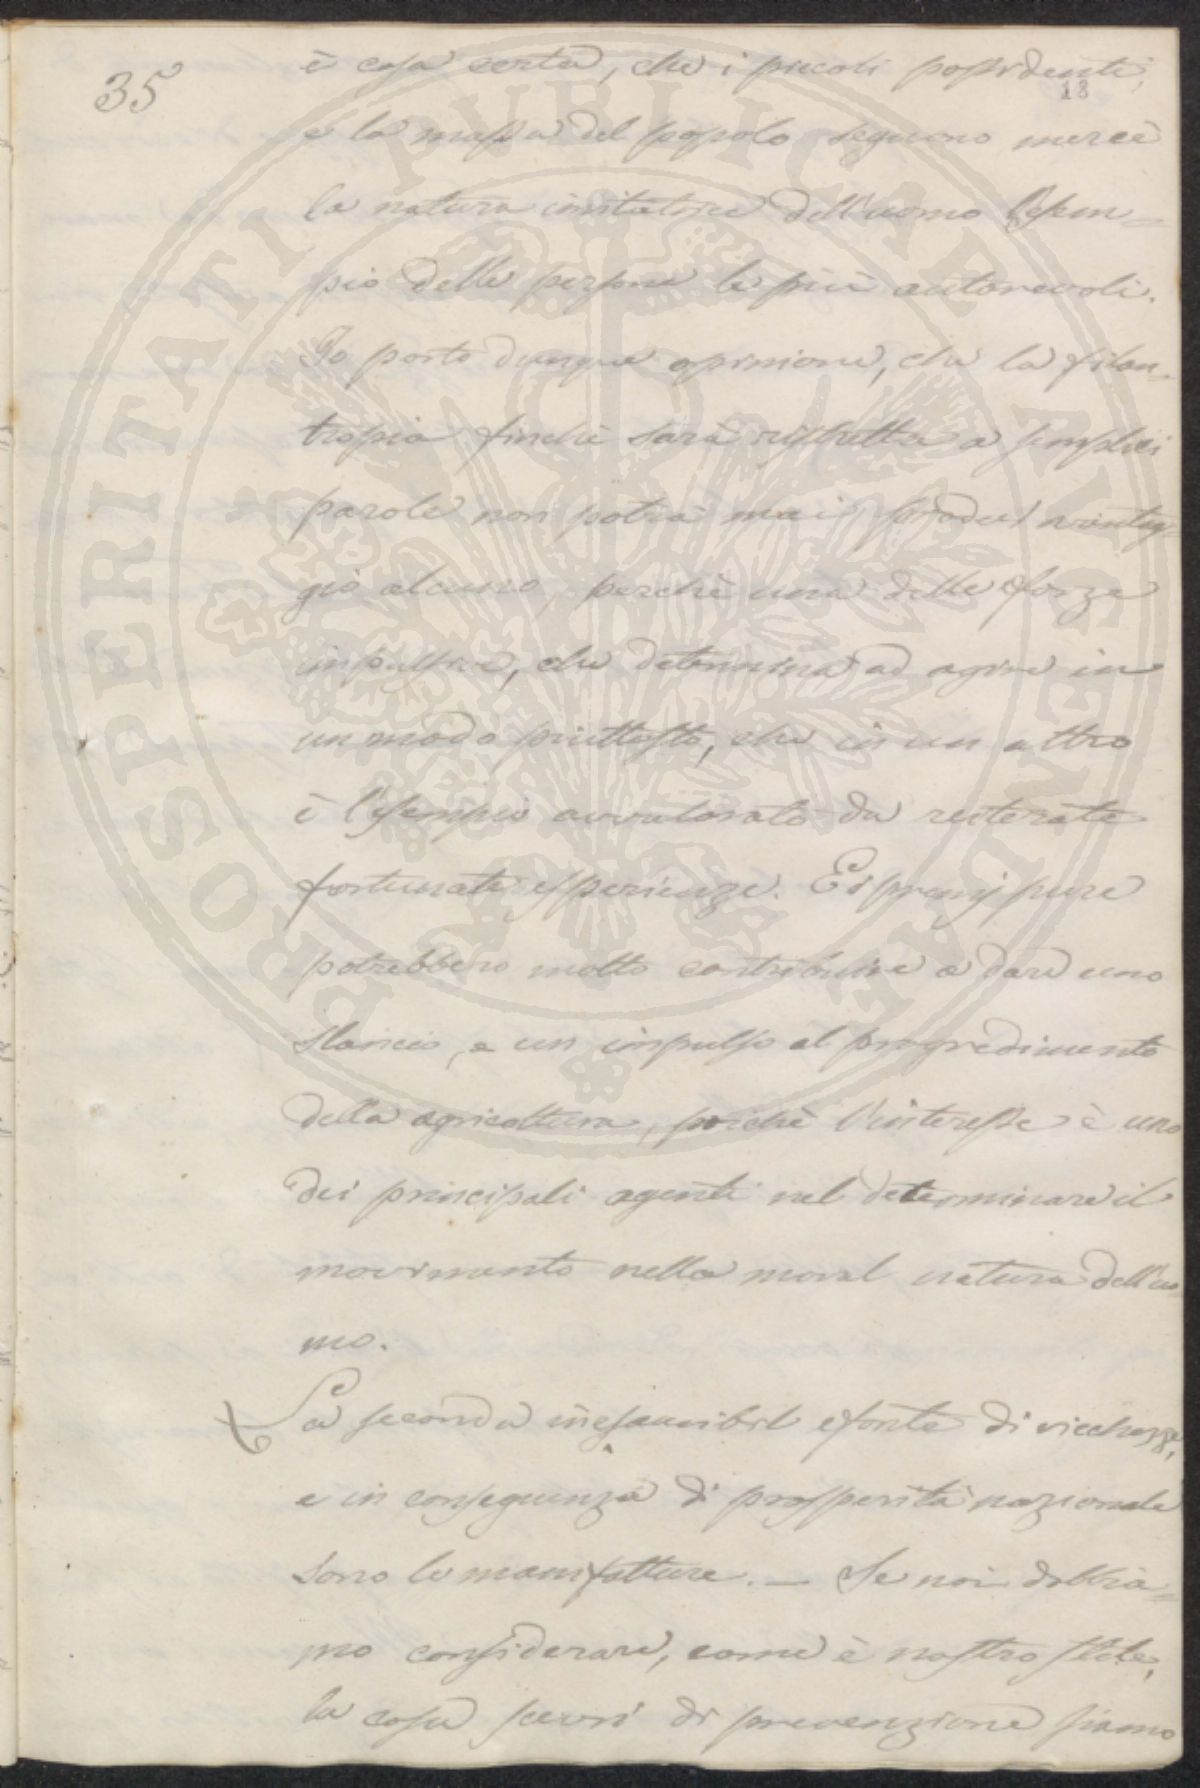 35
è cosa certa, che i piccoli possidenti,
18
e la massa del popolo seguono mercè
la natura imitatrice dell'uomo l'esem=
pio delle persone le più autorevoli.
Io porto dunque opinione, che la filan=
tropia finchè sarà ristretta a semplici
parole non potrà mai produr vantag=
gio alcuno, perchè una delle forze
impulsive, che determina ad agire in
un modo piuttosto, che in un altro
è l'esempio avvalorato da reiterate
fortunate esperienze. Ei premj pure
potrebbero molto contribuire a dare uno
slancio, e un impulso al progredimento
della agricoltura, poichè l'interesse è uno
dei principali agenti nel determinare il
movimento nella moral natura dell'uo=
mo.
La seconda inesauribil fonte di ricchezze,
e in conseguenza di prosperità nazionale
sono le manifatture. — Se noi dobbia=
mo considerare, come è nostro stile,
la cosa scevri di prevenzione siamo
PROSPERITATI PUBLICAE AUGENDAE